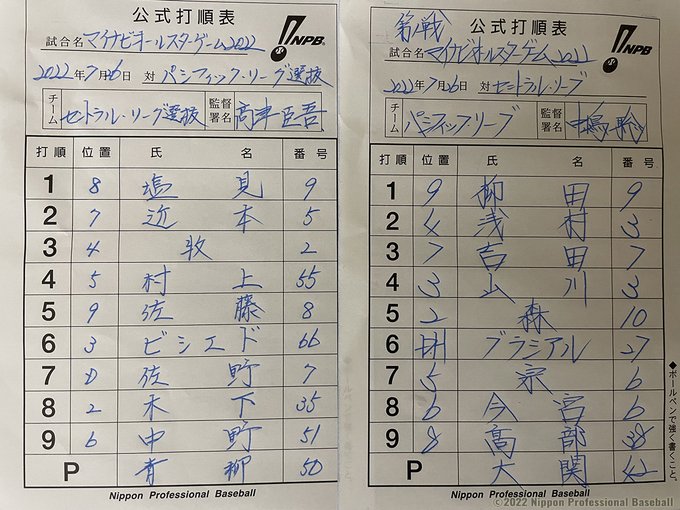 公式打順表
NPB
試合名 マイナビオールスターゲーム2022
2022年7月26日 対 パシフィック・リーグ選抜
チーム セントラル・リーグ選抜 監督署名 高津臣吾
打順 位置 氏名 番号
1 8 塩見 9
2 7 近本 5
3 4 牧 2
4 5 村上 55
5 9 佐藤 8
6 3 ビシエド 66
7 D 佐野 7
8 2 木下 35
9 6 中野 51
P 青柳 50
Nippon Professional Baseball
第1戦
公式打順表
NPB
試合名 マイナビオールスターゲーム2022
2022年7月26日 対 セントラル・リーグ
チーム パシフィックリーグ 監督署名 中嶋聡
打順 位置 氏名 番号
1 9 柳田 9
2 4 浅村 3
3 7 吉田 7
4 3 山川 3
5 2 森 10
6 DH ブラシアル 27
7 5 宗 6
8 6 今宮 6
9 8 髙部 38
P 大関 42
Nippon Professional Baseball
◆ボールペンで強く書くこと。
©2022 Nippon Professional Baseball